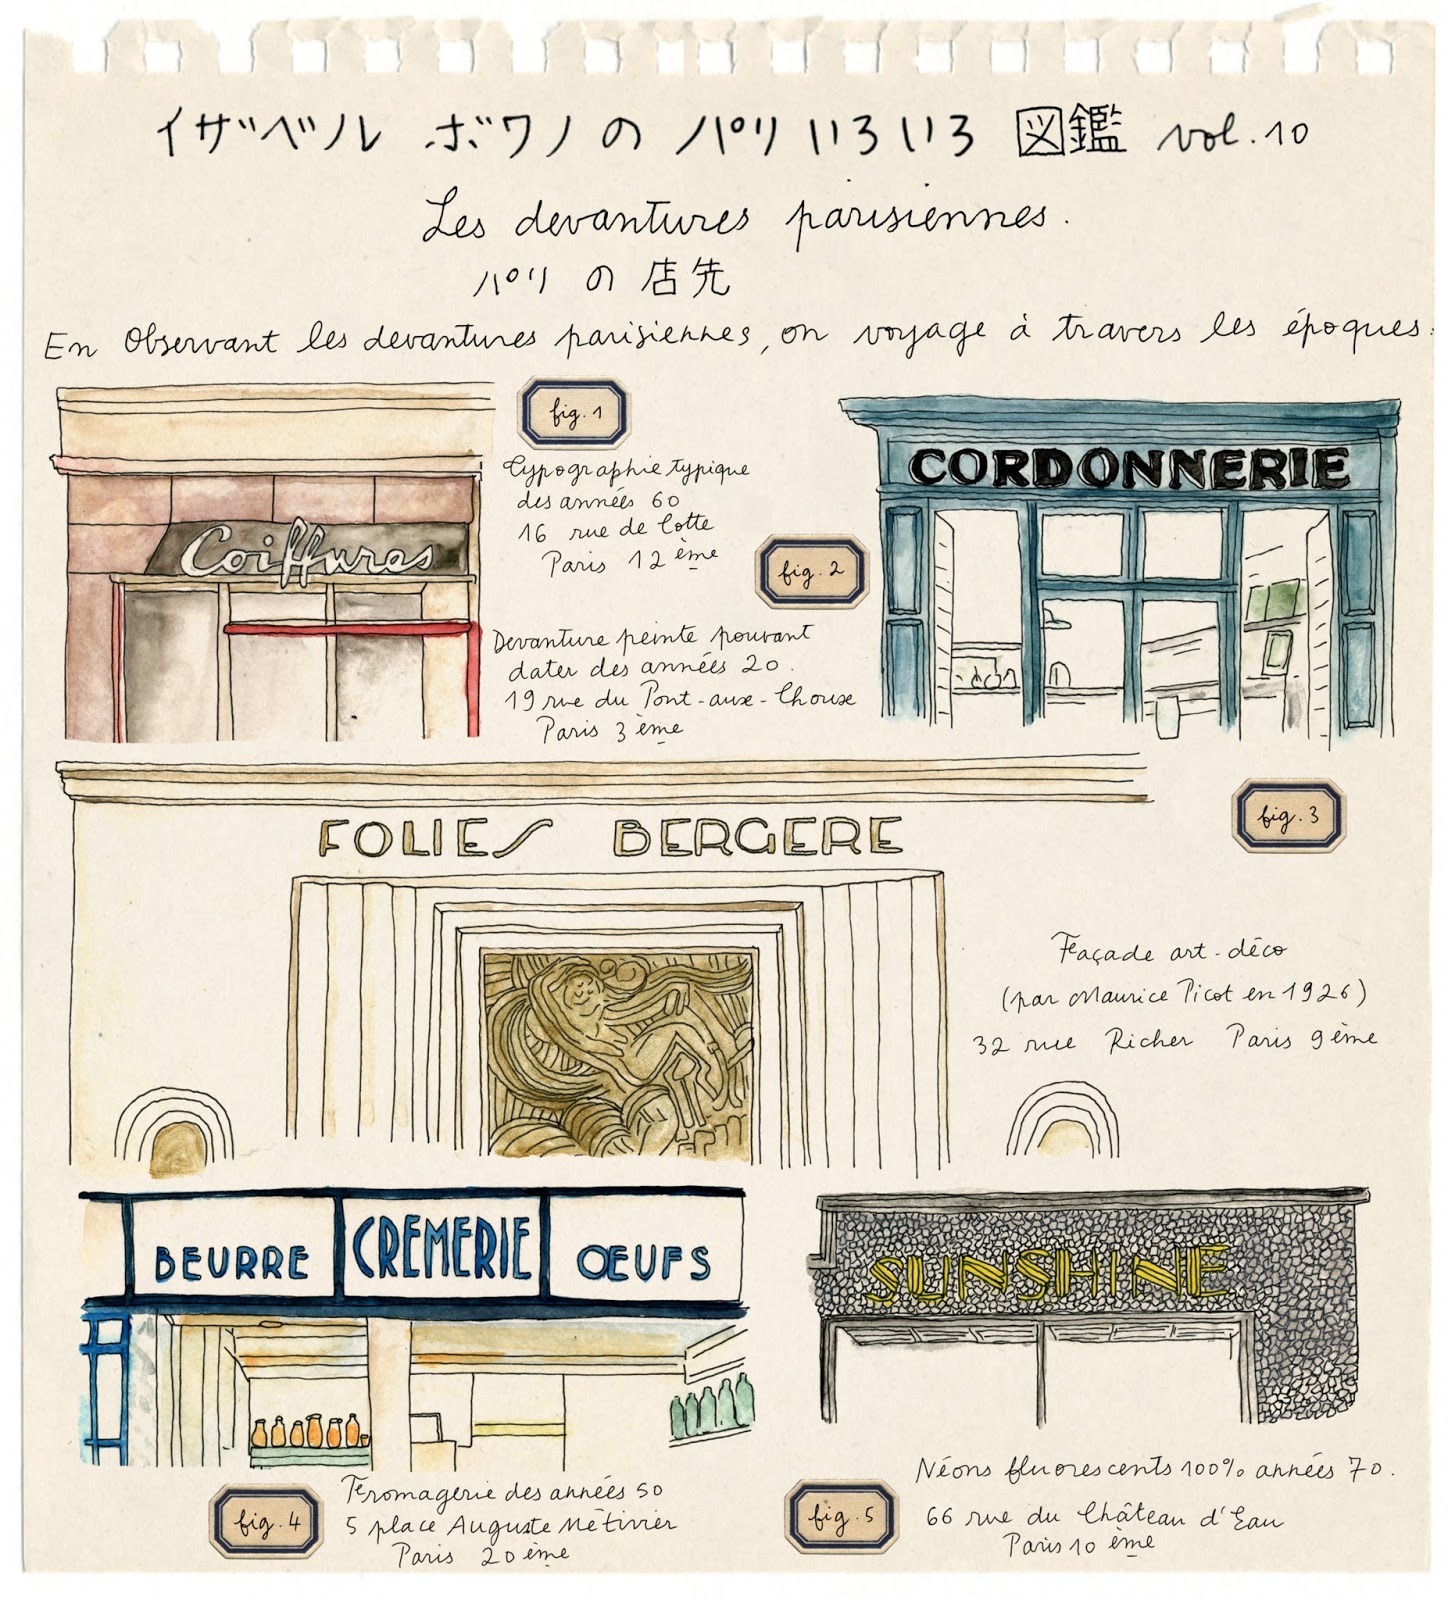 イザベル ボワノの パリ いろいろ 図鑑 vol.10
Les devantures parisiennes.
パリの店先
En observant les devantures parisiennes, on voyage à travers les époques.
fig. 1
Typographie typique
des années 60
16 rue de Cotte
Paris 12ème
Coiffures
CORDONNERIE
fig. 2
Devanture peinte pouvant
dater des années 20.
19 rue du Pont-aux-Choux
Paris 3ème
FOLIES BERGERE
fig. 3
Façade art-déco
(par Maurice Picot en 1926)
32 rue Richer Paris 9ème
BEURRE CREMERIE ŒUFS
fig. 4
Fromagerie des années 50
5 place Auguste Métivier
Paris 20ème
SUNSHINE
fig. 5
Néons fluorescents 100% années 70.
66 rue du Château d'Eau
Paris 10ème